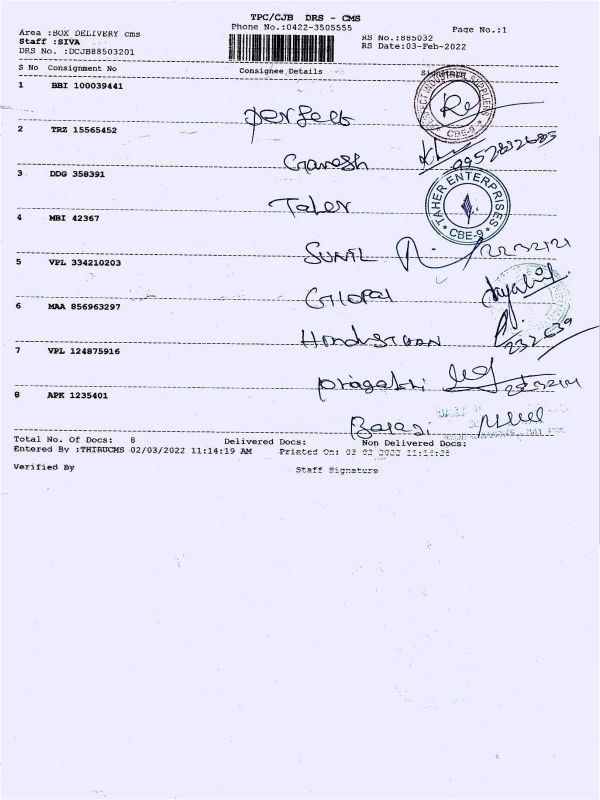 TPC/CJB DRS - CMS
Phone No.:0422-3505555
Page No.:1
Area :BOX DELIVERY cms
Staff :SIVA
DRS No. :DCJB88503201
RS No.:885032
RS Date:03-Feb-2022
S No Consignment No Consignee Details Signature
1 BBI 100039441
perfect
PERFECT INDUSTRIAL SUPPLIERS
CBE-9
2 TRZ 15565452
Ganesh
3 DDG 358391
Taher
TAHER ENTERPRISES
CBE-9
4 MBI 42367
SUNIL 2232121
5 VPL 334210203
GIOPAl
6 MAA 856963297
Hindustaan 232639
7 VPL 124875916
Pragathi
8 APK 1235401
Balaji
Total No. Of Docs: 8 Delivered Docs: Non Delivered Docs:
Entered By :THIRUCMS 02/03/2022 11:14:19 AM Printed On: 03 02 2022
Verified By Staff Signature